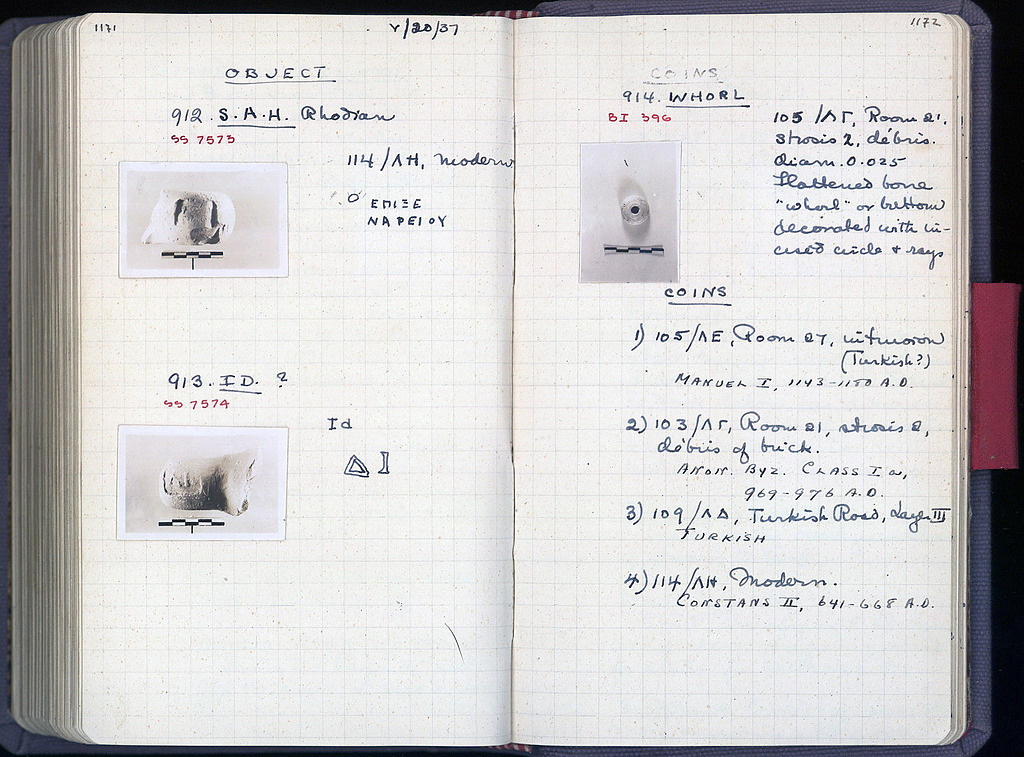 1171
V/20/37
OBJECT
912. S.A.H. Rhodian
SS 7573
114/ΛΗ, modern
ΕΠΙΞΕ
ΝΑΡΕΙΟΥ
913. ID. ?
SS 7574
Id
1172
COINS
914. WHORL
BI 396
105/ΛΓ, Room 21,
strosis 2, débris.
diam. 0.025
Flattened bone
"whorl" or button
decorated with in-
cised circle + rays
COINS
1) 105/ΛΕ, Room 27, intrusion
(Turkish?)
MANUEL I, 1143-1180 A.D.
2) 103/ΛΓ, Room 21, strosis 2,
débris of brick.
ANON. BYZ. CLASS I a,
969-976 A.D.
3) 109/ΛΔ, Turkish Road, Layer III
TURKISH
4) 114/ΛΗ, Modern.
CONSTANS II, 641-668 A.D.